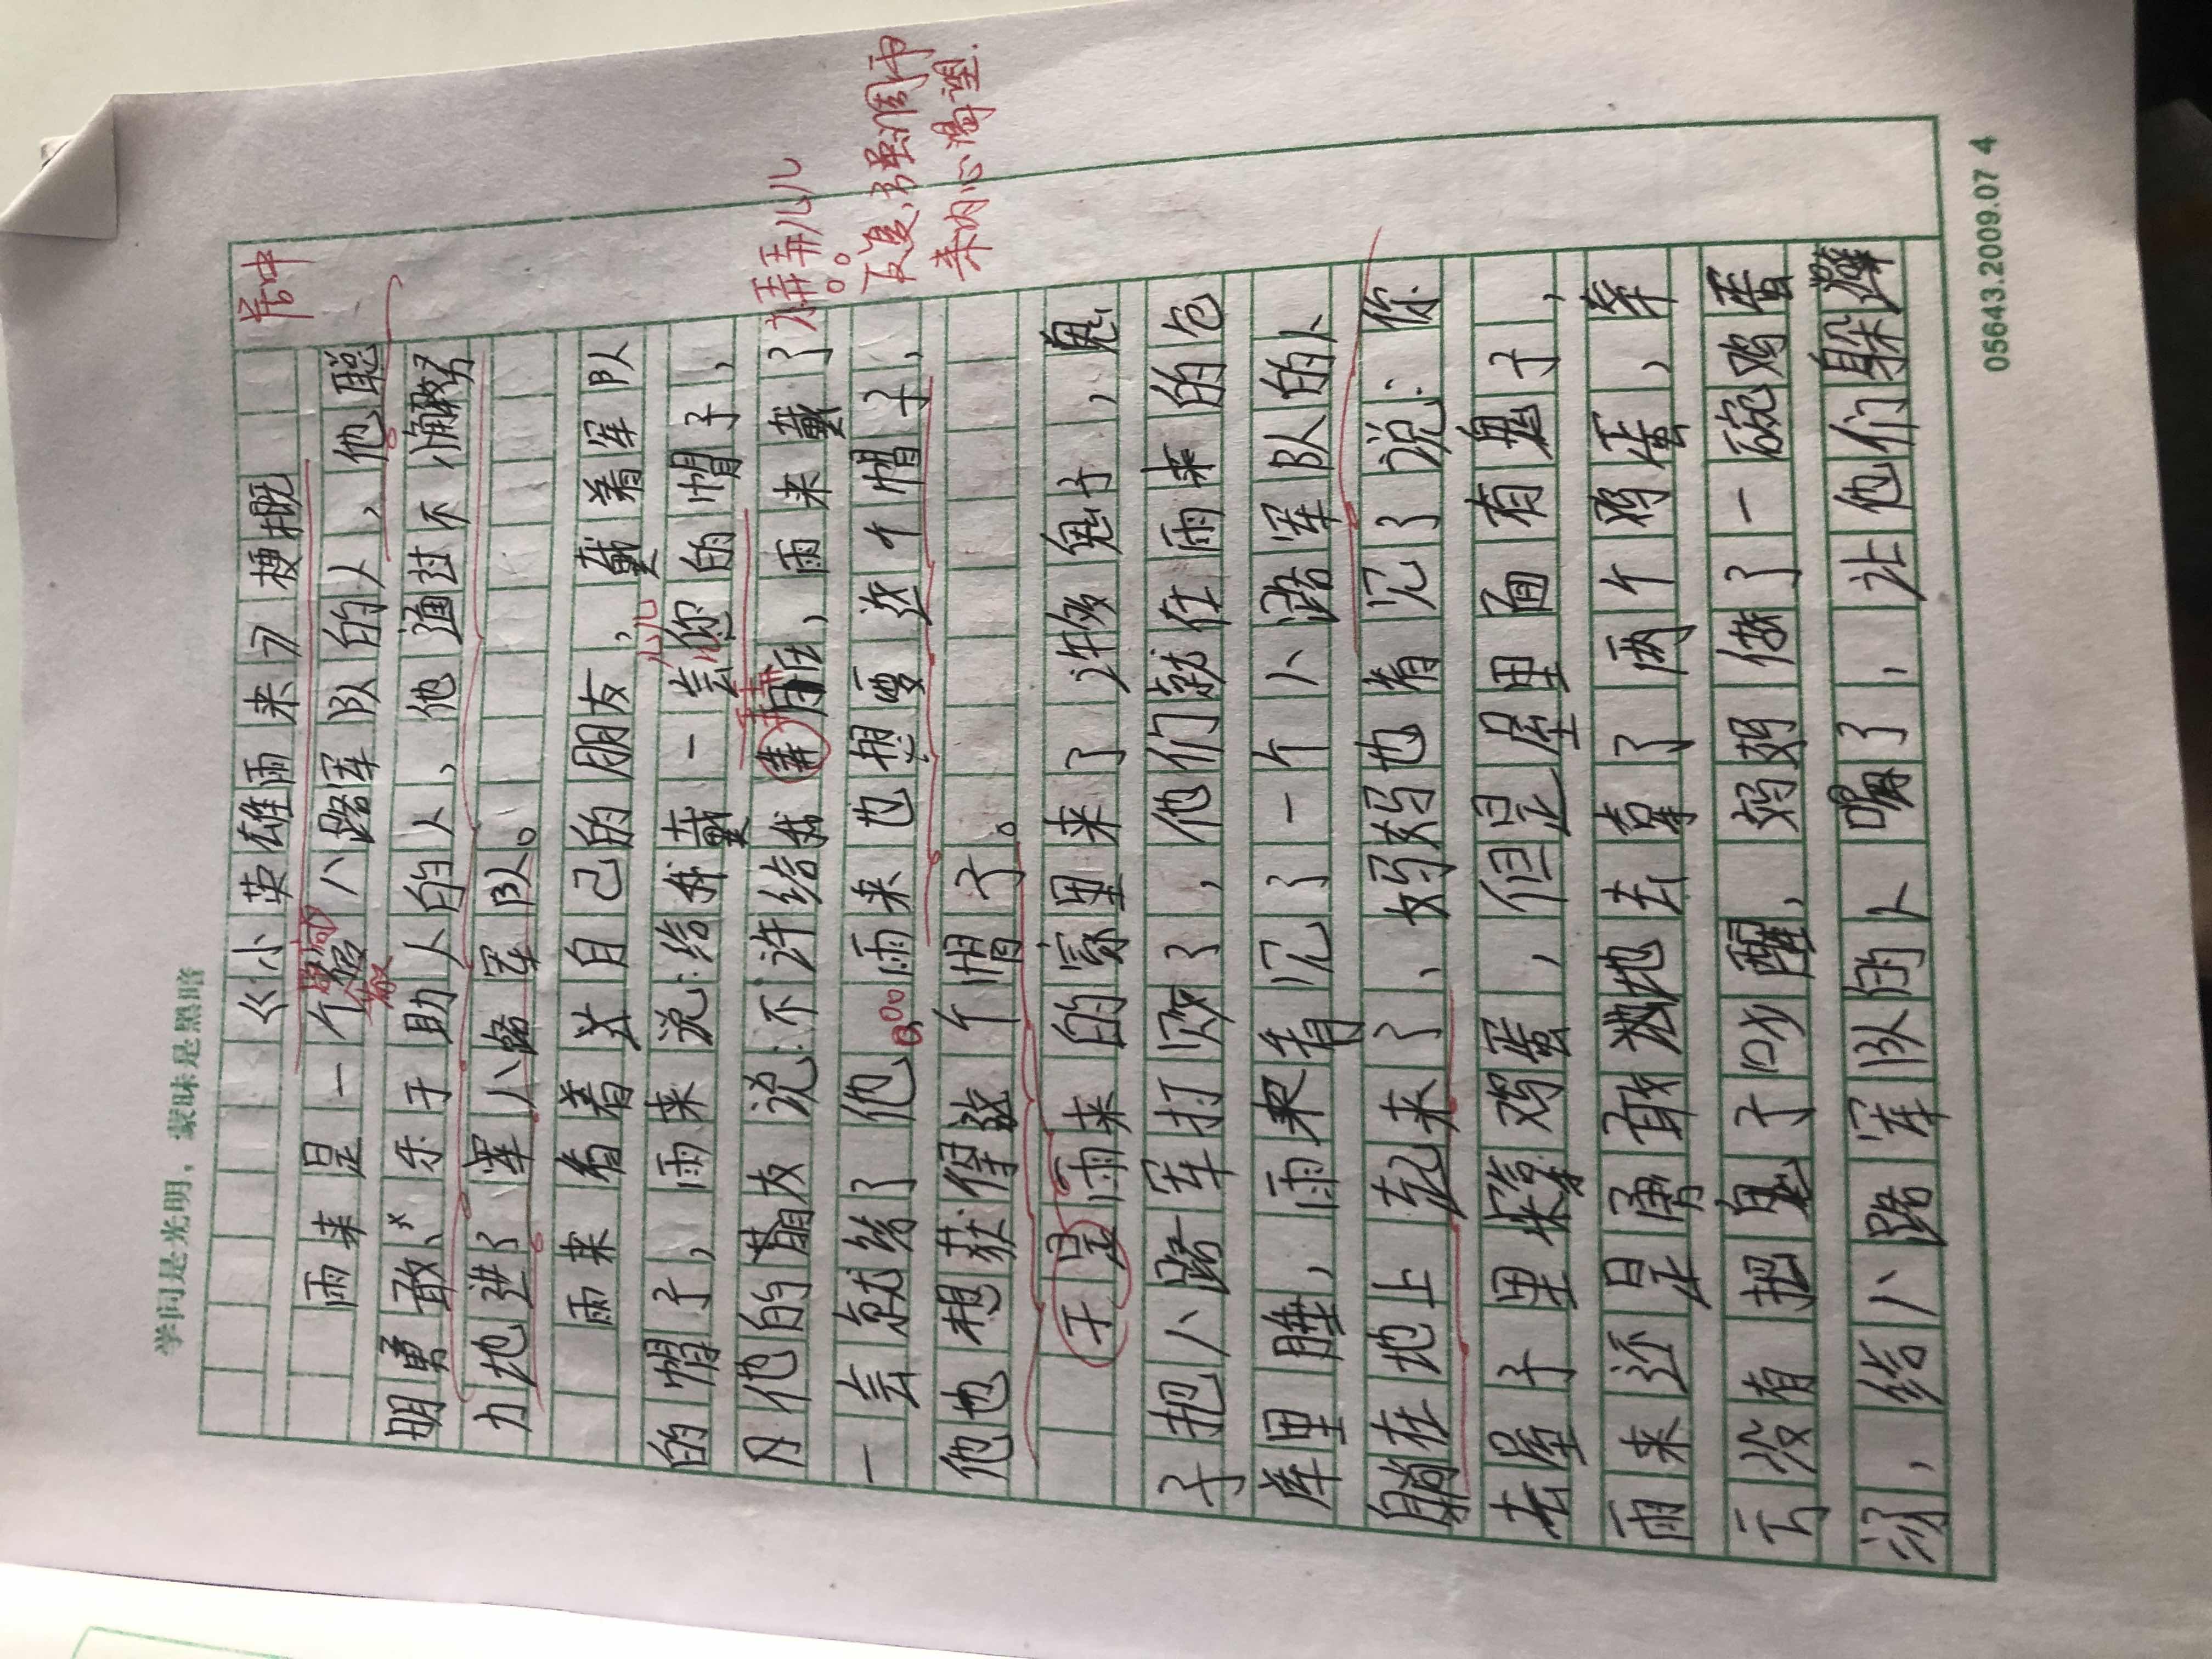 学问是光明，蒙昧是黑暗
《小英雄雨来》梗概
居中
雨来是一个给八路军队的人，他聪
明勇敢、乐于助人的人，他通过不懈努
力地进了军八路军队。
雨来看着关自己的朋友，戴着军队
的帽子，雨来说：给我戴一会您的帽子，
会儿
但他的朋友说：不许给我弄脏，雨来戴了
弄
弄
儿
一会就给了他。雨来也想要这个帽子，
他也想获得这个帽子。
反复，强调雨
来内心渴望.
于是雨来的家里来了许多鬼子，鬼
子把八路军打败了，他们就在雨来的仓
库里睡，雨来看见了一个八路军队的人
躺在地上起来了，妈妈也看见了说：你
去屋子里拿鸡蛋，但是屋里面有鬼子，
雨来还是勇敢地去拿了两个鸡蛋，幸
亏没有把鬼子吵醒，妈妈做了一碗鸡蛋
汤，给八路军队的人喝了，让他们躲避
05643.2009.07 4